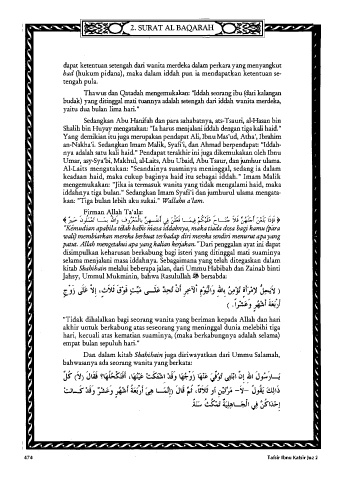 2. SURAT AL BAQARAH
dapat ketentuan setengah dari wanita merdeka dalam perkara yang menyangkut
had (hukum pidana), maka dalam iddah pun ia mendapatkan ketentuan se-
tengah pula.
Thawus dan Qatadah mengemukakan: "Iddah seorang ibu (dari kalangan
budak) yang ditinggal mati tuannya adalah setengah dari iddah wanita merdeka,
yaitu dua bulan lima hari."
Sedangkan Abu Hanifah dan para sahabatnya, ats-Tsauri, al-Hasan bin
Shalih bin Huyay mengatakan: "Ia harus menjalani iddah dengan tiga kali haid."
Yang demikian itu juga merupakan pendapat Ali, Ibnu Mas'ud, Atha', Ibrahim
an-Nakha'i. Sedangkan Imam Malik, Syafi'i, dan Ahmad berpendapat: "Iddah-
nya adalah satu kali haid." Pendapat terakhir ini juga dikemukakan oleh Ibnu
Umar, asy-Sya'bi, Makhul, al-Laits, Abu Ubaid, Abu Tsaur, dan jumhur ulama.
Al-Laits mengatakan: "Seandainya suaminya meninggal, sedang ia dalam
keadaan haid, maka cukup baginya haid itu sebagai iddah." Imam Malik
mengemukakan: "Jika ia termasuk wanita yang tidak mengalami haid, maka
iddahnya tiga bulan." Sedangkan Imam Syafi'i dan jumhurul ulama mengata-
kan: "Tiga bulan lebih aku sukai." Wallahu a'lam.
Firman Allah Ta'ala:
﴿ فَإِذَا بَلَغْنَ أَجَلَهُنَّ فَلَا جُنَاحَ عَلَيْكُمْ فِيمَا فَعَلْنَ فِي أَنْفُسِهِنَّ بِالْمَعْرُوفِ وَاللَّهُ بِمَا تَعْمَلُونَ خَبِيرٌ ﴾
"Kemudian apabila telah habis masa iddahnya, maka tiada dosa bagi kamu (para
wali) membiarkan mereka berbuat terhadap diri mereka sendiri menurut apa yang
patut. Allah mengetahui apa yang kalian kerjakan." Dari penggalan ayat ini dapat
disimpulkan keharusan berkabung bagi isteri yang ditinggal mati suaminya
selama menjalani masa iddahnya. Sebagaimana yang telah ditegaskan dalam
kitab Shahihain melalui beberapa jalan, dari Ummu Habibah dan Zainab binti
Jahsy, Ummul Mukminin, bahwa Rasulullah ﷺ bersabda:
( لَا يَحِلُّ لِامْرَأَةٍ تُؤْمِنُ بِاللَّهِ وَالْيَوْمِ الْآخِرِ أَنْ تُحِدَّ عَلَى مَيِّتٍ فَوْقَ ثَلَاثٍ، إِلَّا عَلَى زَوْجٍ
أَرْبَعَةَ أَشْهُرٍ وَعَشْرًا. )
"Tidak dihalalkan bagi seorang wanita yang beriman kepada Allah dan hari
akhir untuk berkabung atas seseorang yang meninggal dunia melebihi tiga
hari, kecuali atas kematian suaminya, (maka berkabungnya adalah selama)
empat bulan sepuluh hari."
Dan dalam kitab Shahihain juga diriwayatkan dari Ummu Salamah,
bahwasanya ada seorang wanita yang berkata:
يَا رَسُولَ اللهِ إِنَّ ابْنَتِي تُوُفِّيَ عَنْهَا زَوْجُهَا وَقَدْ اشْتَكَتْ عَيْنُهَا، أَفَنَكْحُلُهَا؟ فَقَالَ: (لَا) كُلُّ
ذَالِكَ يَقُولُ –لَا– مَرَّتَيْنِ أَوْ ثَلَاثًا، ثُمَّ قَالَ (إِنَّمَا هِيَ أَرْبَعَةُ أَشْهُرٍ وَعَشْرٌ وَقَدْ كَانَتْ
إِحْدَاكُنَّ فِي الْجَاهِلِيَّةِ تَمْكُثُ سَنَةً
474
Tafsir Ibnu Katsir Juz 2